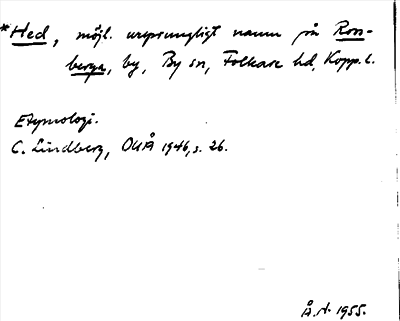 *Hed, möjl. ursprungligt namn på Rom-
berga, by, By sn, Folkare hd, Kopp. l.
Etymologi.
C. Lindberg, OUÅ 1946, s. 26.
Å.N. 1955.